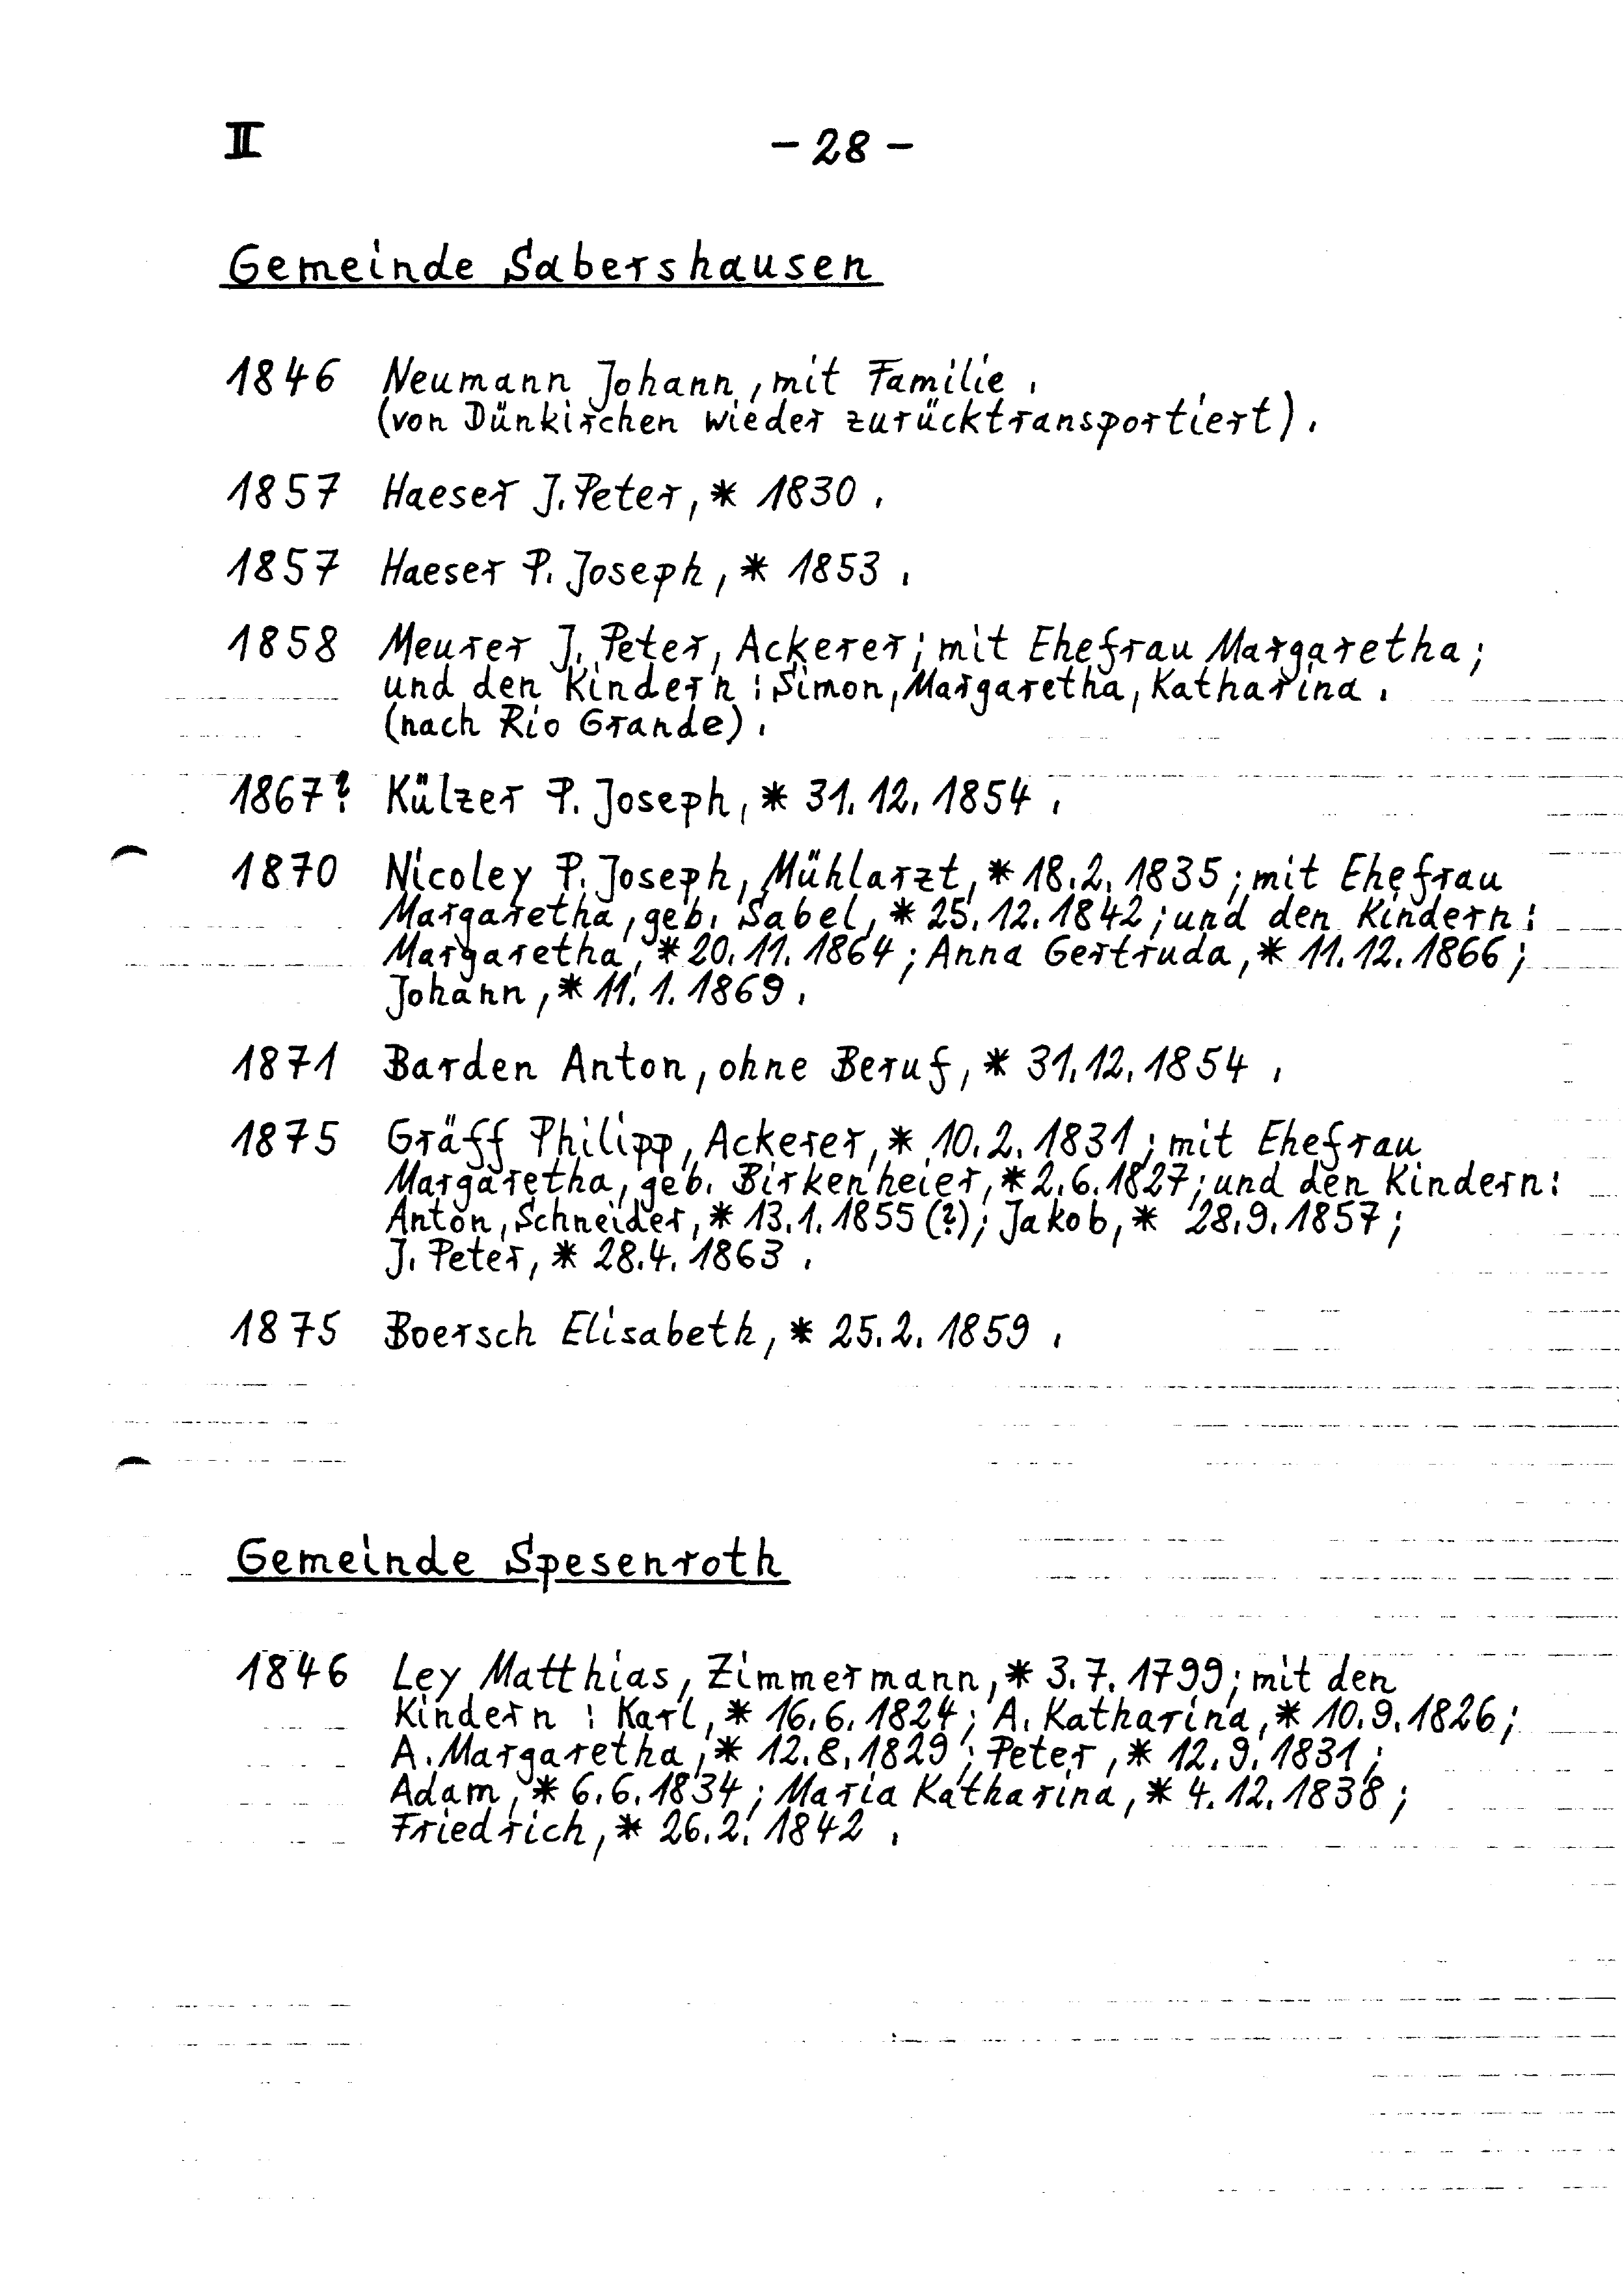 II
- 28 -
Gemeinde Sabershausen
1846 Neumann Johann, mit Familie.
(von Dünkirchen wieder zurücktransportiert).
1857 Haeser J. Peter, * 1830.
1857 Haeser P. Joseph, * 1853.
1858 Meurer J. Peter, Ackerer; mit Ehefrau Margaretha;
und den Kindern: Simon, Margaretha, Katharina.
(nach Rio Grande).
1867? Külzer P. Joseph, * 31.12.1854.
1870 Nicoley P. Joseph, Mühlarzt, * 18.2.1835; mit Ehefrau
Margaretha, geb. Sabel, * 25.12.1842; und den Kindern:
Margaretha, * 20.11.1864; Anna Gertruda, * 11.12.1866;
Johann, * 11.1.1869.
1871 Barden Anton, ohne Beruf, * 31.12.1854.
1875 Gräff Philipp, Ackerer, * 10.2.1831; mit Ehefrau
Margaretha, geb. Birkenheier, * 2.6.1827; und den Kindern:
Anton, Schneider, * 13.1.1855 (?); Jakob, * 28.9.1857;
J. Peter, * 28.4.1863.
1875 Boersch Elisabeth, * 25.2.1859.
Gemeinde Spesenroth
1846 Ley Matthias, Zimmermann, * 3.7.1799; mit den
Kindern: Karl, * 16.6.1824; A. Katharina, * 10.9.1826;
A. Margaretha, * 12.8.1829; Peter, * 12.9.1831;
Adam, * 6.6.1834; Maria Katharina, * 4.12.1838;
Friedrich, * 26.2.1842.